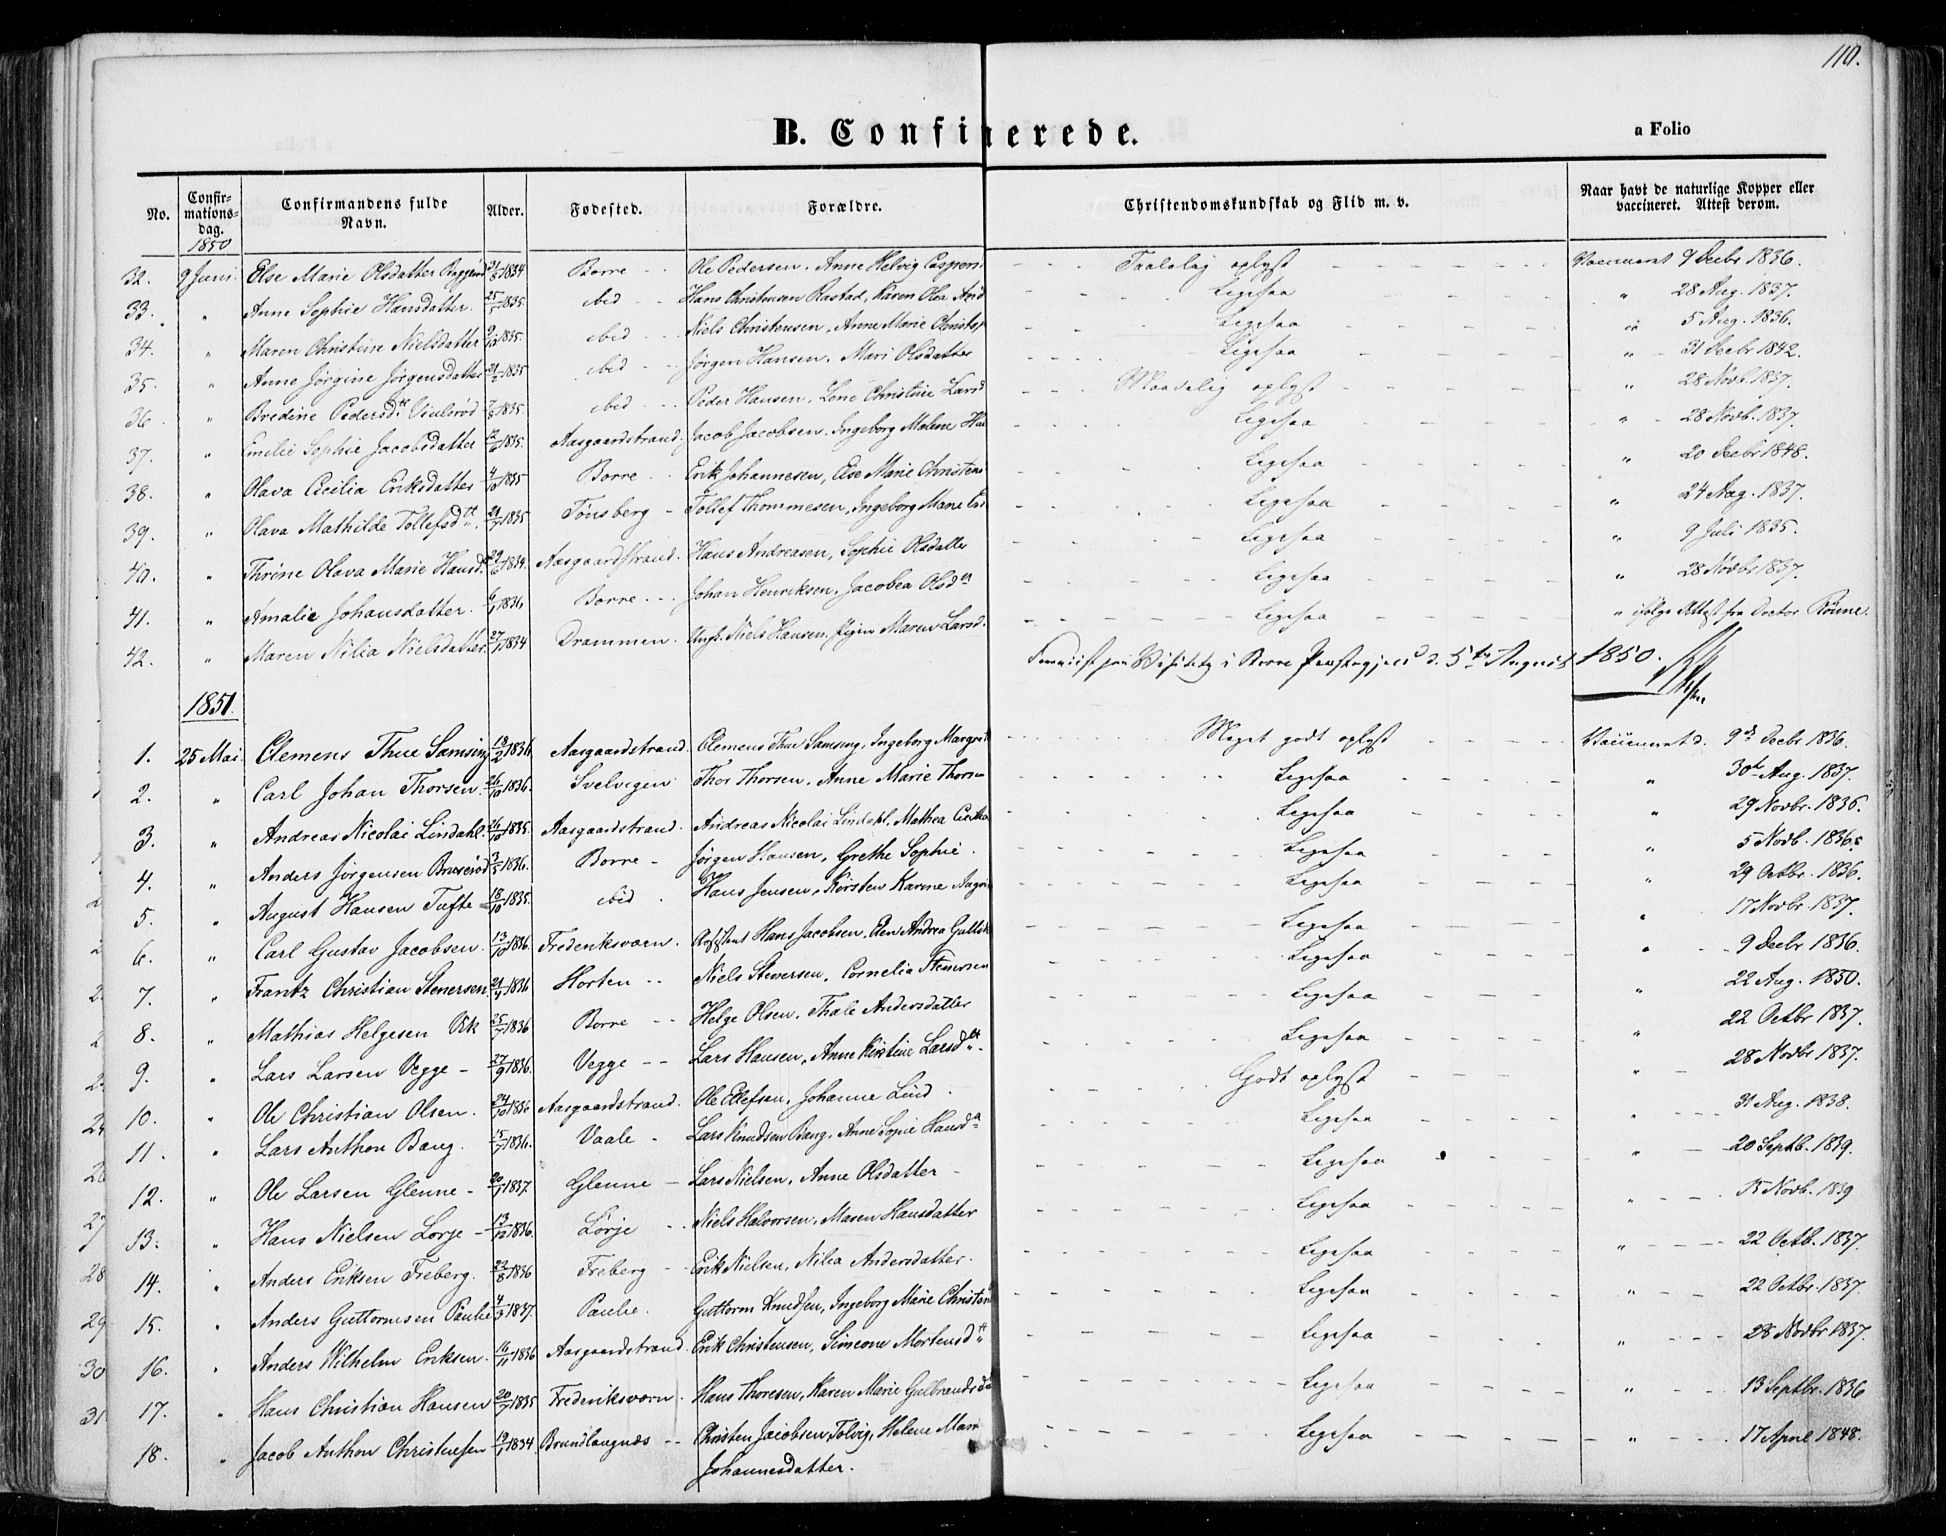 110.
B. Confirmerede.
a Folio
No. Confirmationsdag. Confirmandens fulde Navn. Alder. Fødested. Forældre. Christendomskundskab og Flid m. v. Naar havt de naturlige Kopper eller vaccineret. Attest derom.
1850
32. 9 Juni. Else Marie Olsdatter 21/8 1834 Borre Ole Pedersen. Anne Helvig Caspers. Taalelig oplyst Vaccineret 9 Decbr 1836.
33. " Anne Sophie Hansdatter. 25/5 1835. ibid Hans Christensen Rastad, Karen Olea And Ligesaa " 28 Aug. 1837.
34. " Maren Christine Nielsdatter 9/10 1835. ibid Niels Christensen, Anne Marie Christ Ligesaa " 5 Aug. 1836.
35. " Anne Jørgine Jørgensdatter 21/2 1835 ibid Jørgen Hansen. Mari Olsdatter Ligesaa " 31 Decbr 1842.
36. " Bredine Pedersdtr Viulsrød 7/8 1835. ibid Peder Hansen, Lene Christine Larsd Maadelig oplyst " 28 Novb. 1837.
37. " Emilie Sophie Jacobsdatter 1835. Aasgaardstrand. Jacob Jacobsen. Ingeborg Malene Han Ligesaa " 28 Novb. 1837.
38. " Olava Cicilia Eriksdatter 4/10 1835 Borre Erik Johannesen, Else Marie Christens Ligesaa " 20 Decbr 1848.
39. " Olava Mathilde Tollefsdtr. 1835 Tønsberg Tollef Thommesen, Ingeborg Marie Ligesaa " 24 Aug. 1837.
40. " Thrine Olava Marie Hansd 1834. Aasgaardstrand. Hans Andreasen, Sophie Olsdatter Ligesaa " 9 Juli 1835.
41. " Amalie Johansdatter. 6/1 1836 Borre Johan Henriksen. Jacobea Olsdtr Ligesaa " 28 Novbr 1837.
42. " Maren Nilia Nielsdatter. 27/1 1834 Drammen. Niels Hansen. Pigen Maren Larsd. Ligesaa " ifølge Attest fra Doctor Rønne.
Borre Præstegjeld d. 5te August 1850.
1851.
1. 25 Mai. Clemens Thue Samsing 18/2 1836 Aasgaardstrand. Clemens Thue Samsing, Ingeborg Margret Meget godt oplyst Vaccineret d. 9de Decbr 1836.
2. " Carl Johan Thorsen. 26/10 1836. Svelvigen Thor Thorsen. Anne Marie Thors Ligesaa " 30te Aug. 1837.
3. " Andreas Nicolai Lindahl. 26/10 1835. Aasgaardstrand. Andreas Nicolai Lindahl. Mathea Ligesaa " 29 Novbr. 1836.
4. " Anders Jørgensen Bruserød 3/5 1836. Borre Jørgen Hansen, Grethe Sophie. Ligesaa " 5 Novb. 1836.
5. " August Hansen Tufte 18/10 1835. ibid. Hans Jensen. Kirsten Karine Ligesaa " 29 Octbr. 1836.
6. " Carl Gustav Jacobsen. 13/10 1836. Frederiksværn. Assistent Hans Jacobsen. Elen Andrea Ligesaa " 17 Novbr. 1837.
7. " Frantz Christian Stenersen. 21/4 1836 Horten Niels Stenersen, Cornelia Stenersen Ligesaa " 9 Decbr 1836.
8. " Mathias Helgesen Vik 25/7 1836 Borre Helge Olsen. Thale Andersdatter Ligesaa " 22 Aug. 1850.
9. " Lars Larsen Vegge 27/9 1836. Vegge Lars Hansen, Anne Kirstine Larsdtr. Ligesaa " 22 Octbr 1837.
10. " Ole Christian Olsen. 24/10 1836 Aasgaardstrand. Ole Ellefsen, Johanne Lind. Godt oplyst 28 Novbr 1837.
11. " Lars Anthon Bang. 15/7 1836. Vaale Lars Knudsen Bang. Anne Sopie Hansd Ligesaa " 31 Aug. 1838.
12. " Ole Larsen Glenne 20/1 1837. Glenne Lars Nielsen. Anne Olsdatter Ligesaa " 20 Septb. 1839.
13. " Hans Nielsen Lørje 13/12 1836. Lørje Niels Halvorsen. Maren Hansdatter Ligesaa " 15 Novb. 1839
14. " Anders Eriksen Freberg. 23/8 1836 Freberg Erik Nielsen, Nilia Andersdatter. Ligesaa " 22 Octb. 1837.
15. " Anders Guttormsen Paulie 4/3 1837. Paulie. Guttorm Knudsen, Ingeborg Marie Christen Ligesaa " 22 Octbr. 1837.
16. " Anders Wilhelm Eriksen. 16/11 1836 Aasgaardstrand. Erik Christensen, Simeone Mortensdtr Ligesaa " 28 Novbr 1837.
17. " Hans Christian Hansen 20/7 1835 Frederiksværn. Hans Thoresen, Karen Marie Gulbrandsd Ligesaa " 13 Septbr. 1836
18. " Jacob Anthon Christensen 19/1 1834. Brundlaugnæs Christen Jacobsen Tolvig, Helene Mari Ligesaa " 17 April 1848.
Johannesdatter.
27
28
29
30
31